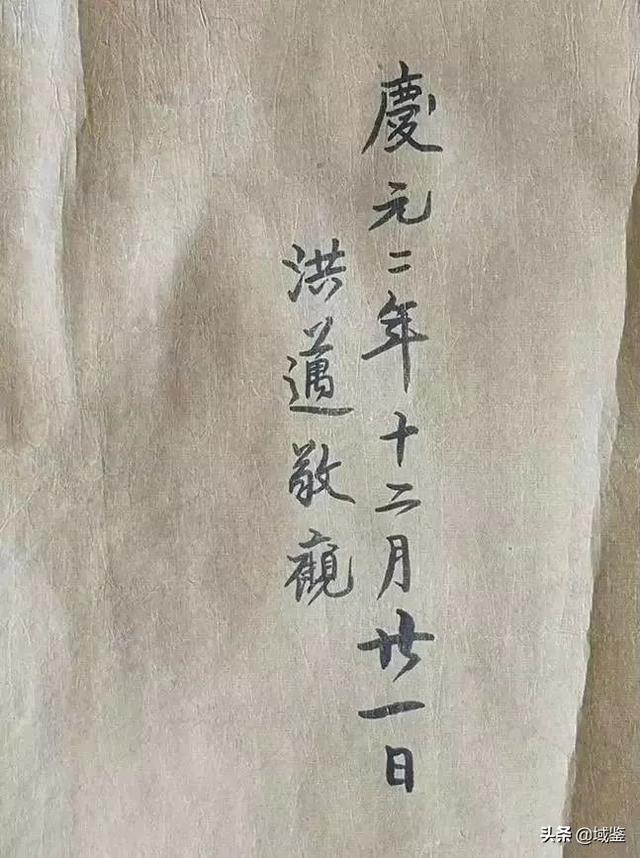 慶元二年十二月廿一日
洪邁敬觀
头条 @域鉴